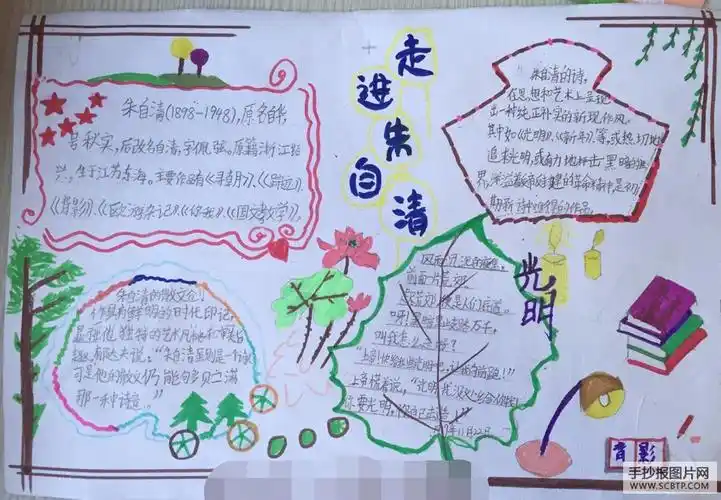 走进朱自清
朱自清(1898-1948),原名自华,
号秋实,后改名自清,字佩弦。原籍浙江绍
兴,生于江苏东海。主要作品有《踪迹》、
《背影》、《欧游杂记》、《你我》、《国文教学》,
朱自清的诗,
在思想和艺术上呈现
出一种纯正朴实的新现作风。
其中如《光明》、《新年》等,或热切地
追求光明,或有力地抨击黑暗的世
期新诗中难得的作品。
朱自清的散文创
作具有鲜明的时代印记,
显独他独特的艺术
郁达夫说:“朱自清虽则是一个诗
可是他的散文仍能够贝之满
那一种诗意。”
光明
风雨沉沉的夜里,
前面一片荒郊。
走尽荒郊,便是人们底道。
呀!黑暗里歧路万千,
叫我怎么走好?
“上帝!快给我些光明吧,让我好向前跑!”
上帝慌着说,“光明?我没处给你找!
你要光明,你自己去造!”
11月22日
背影
手抄报图片网
WWW.SCBTP.COM